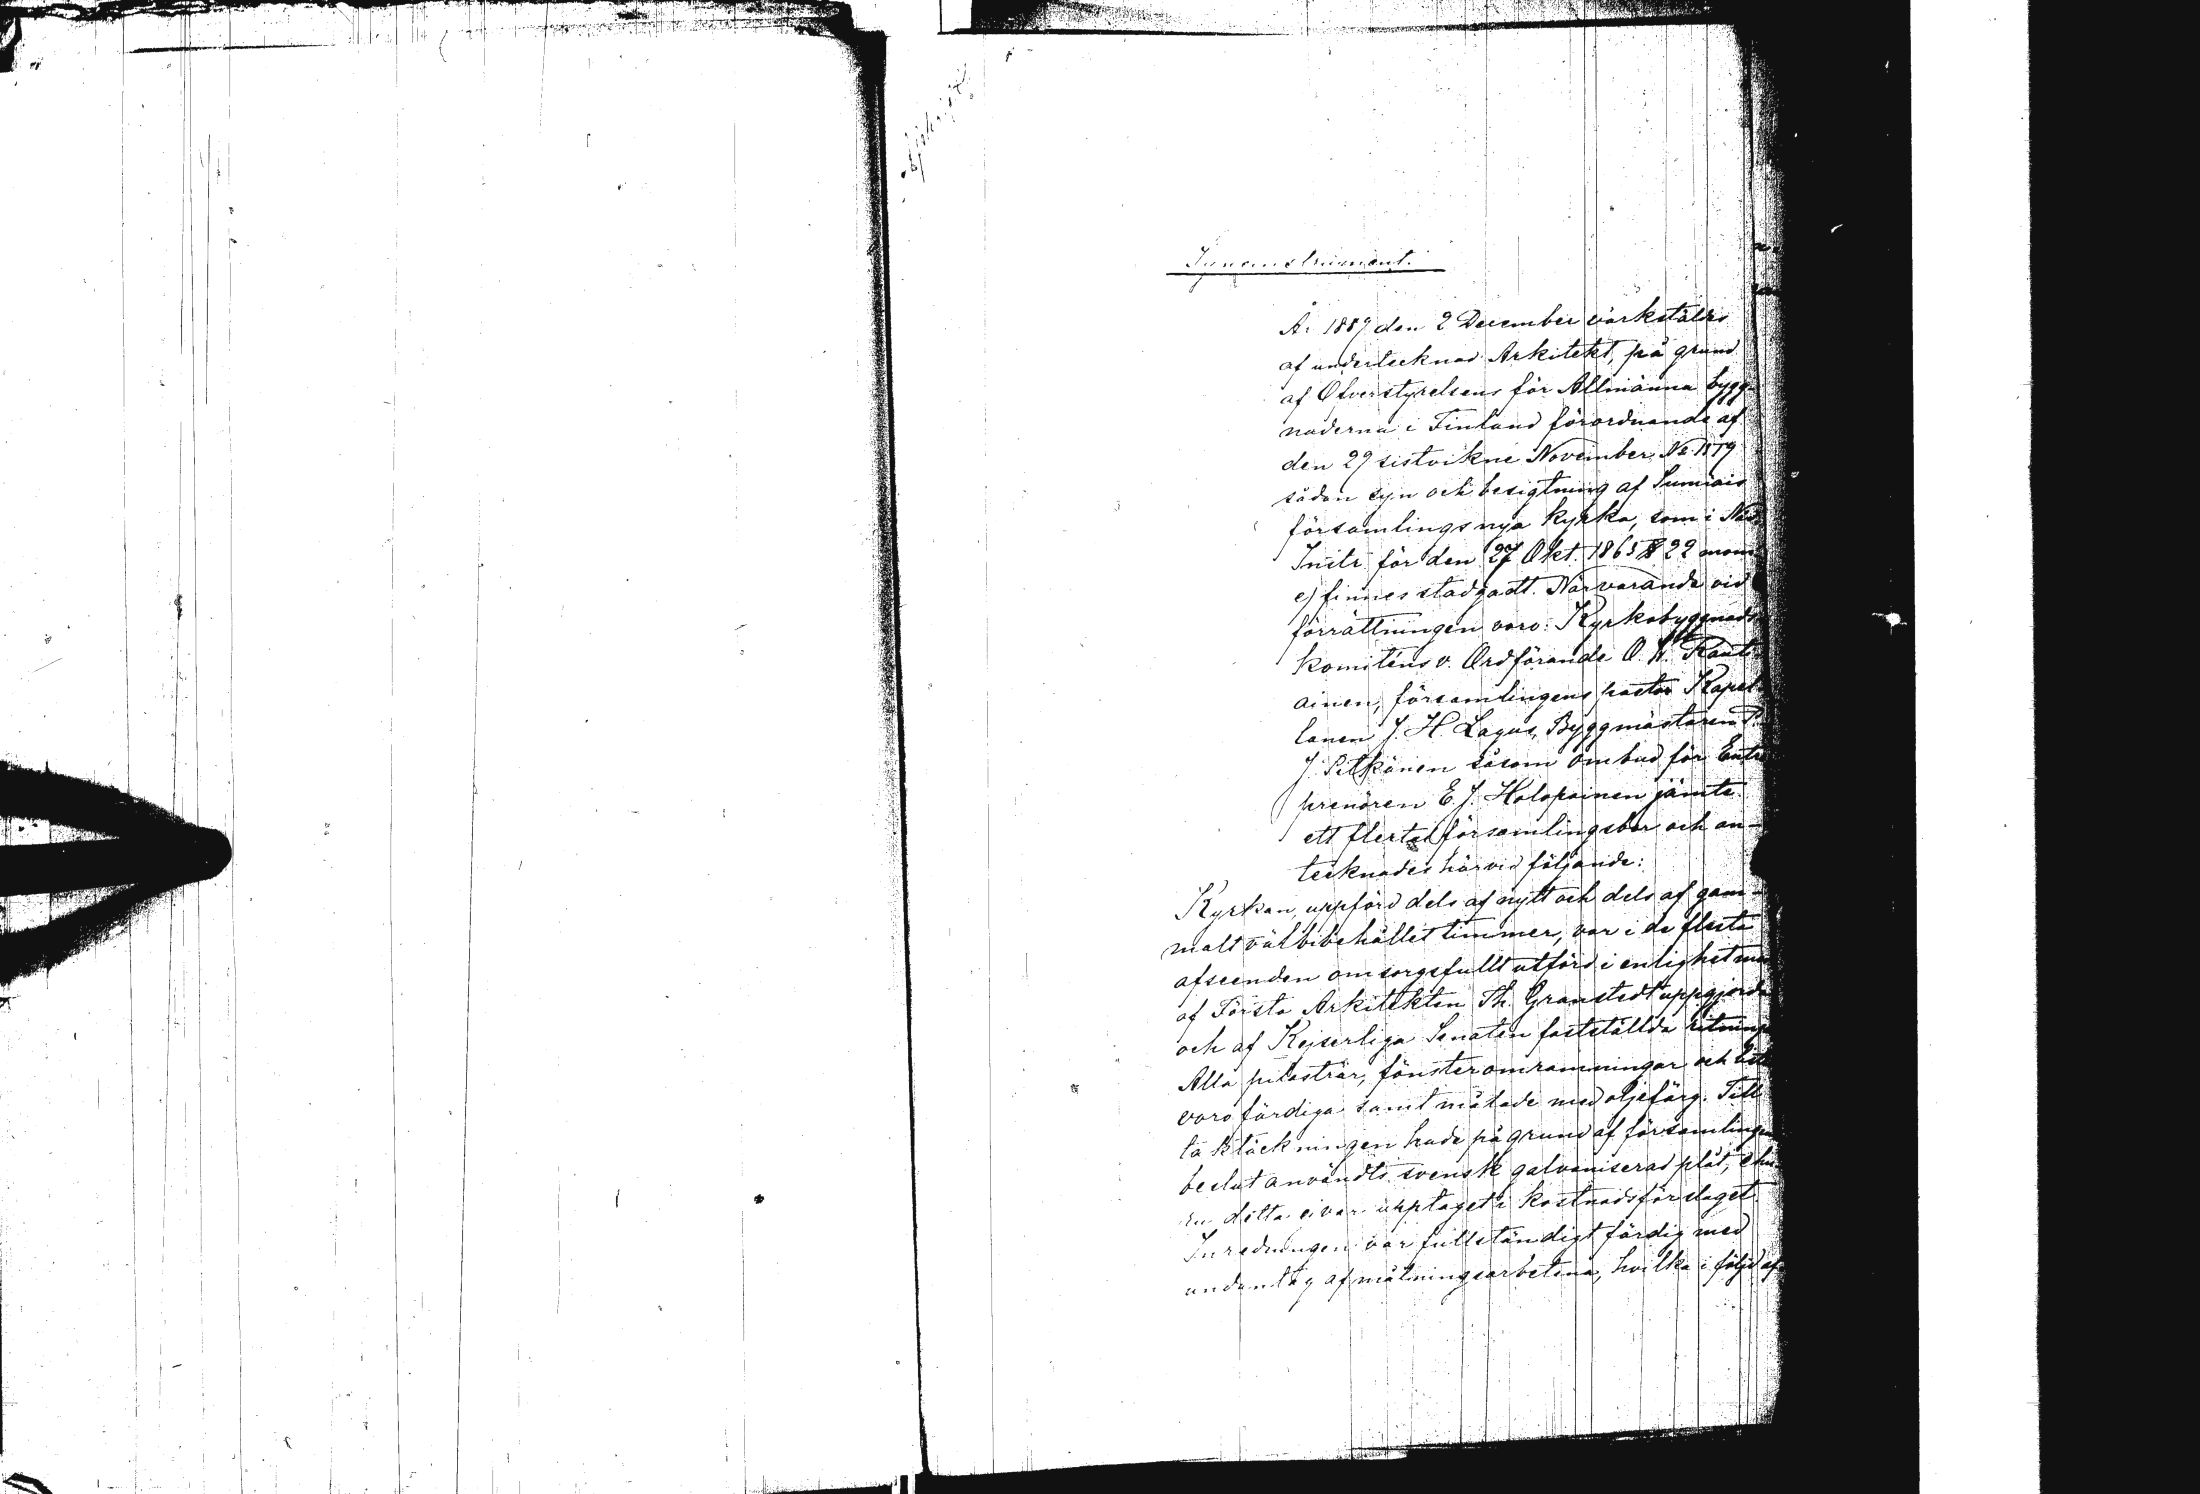 Afskrift.
Syneinstrument.
År 1889 den 2 December värkstäldes
af undertecknad Arkitekt, på grund
af Öfverstyrelsens för Allmänna bygg-
naderna i Finland förordnande af
den 29 sistvikne November No 1579
sådan syn och besigtning af Sumiais
församlings nya kyrka, som i Nåd.
Instr för den 27 Okt. 1865 § 22 mom
e) finnes stadgadt. Närvarande vid
förrättningen voro: Kyrkobyggnads
komiténs v. Ordförande O. W. Raut-
ainen, församlingens pastor Kapel-
lanen J. H. Lagus, Byggmästaren P.
J. Pitkänen såsom ombud för Entre
prenören E. J. Holopainen jämte
ett flertal församlingsbor och an-
tecknades härvid följande:
Kyrkan, uppförd dels af nytt och dels af gam-
malt välbibehållet timmer, var i de flesta
afseenden omsorgsfullt utförd i enlighet med
af Första Arkitekten Th. Granstedt uppgjorda
och af Kejserliga Senaten fastställda ritningar
Alla pilastrar, fönsteromramningar och
voro färdiga samt målade med oljefärg. Till
takläckningen hade på grund af församlingens
beslut användts svensk galvaniserad plåt, ehu-
ru detta ej var upptaget i kostnadsförslaget.
Inredningen var fullständigt färdig med
undantag af målningsarbetena, hvilka i följd af